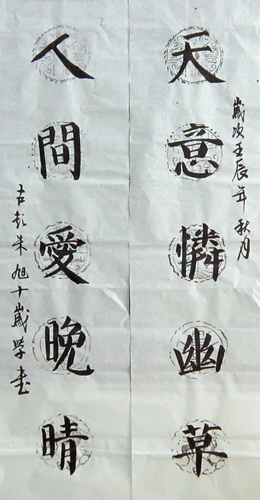 歲次壬辰年秋月
天意憐幽草
人間愛晚晴
古彭朱旭十歲學書